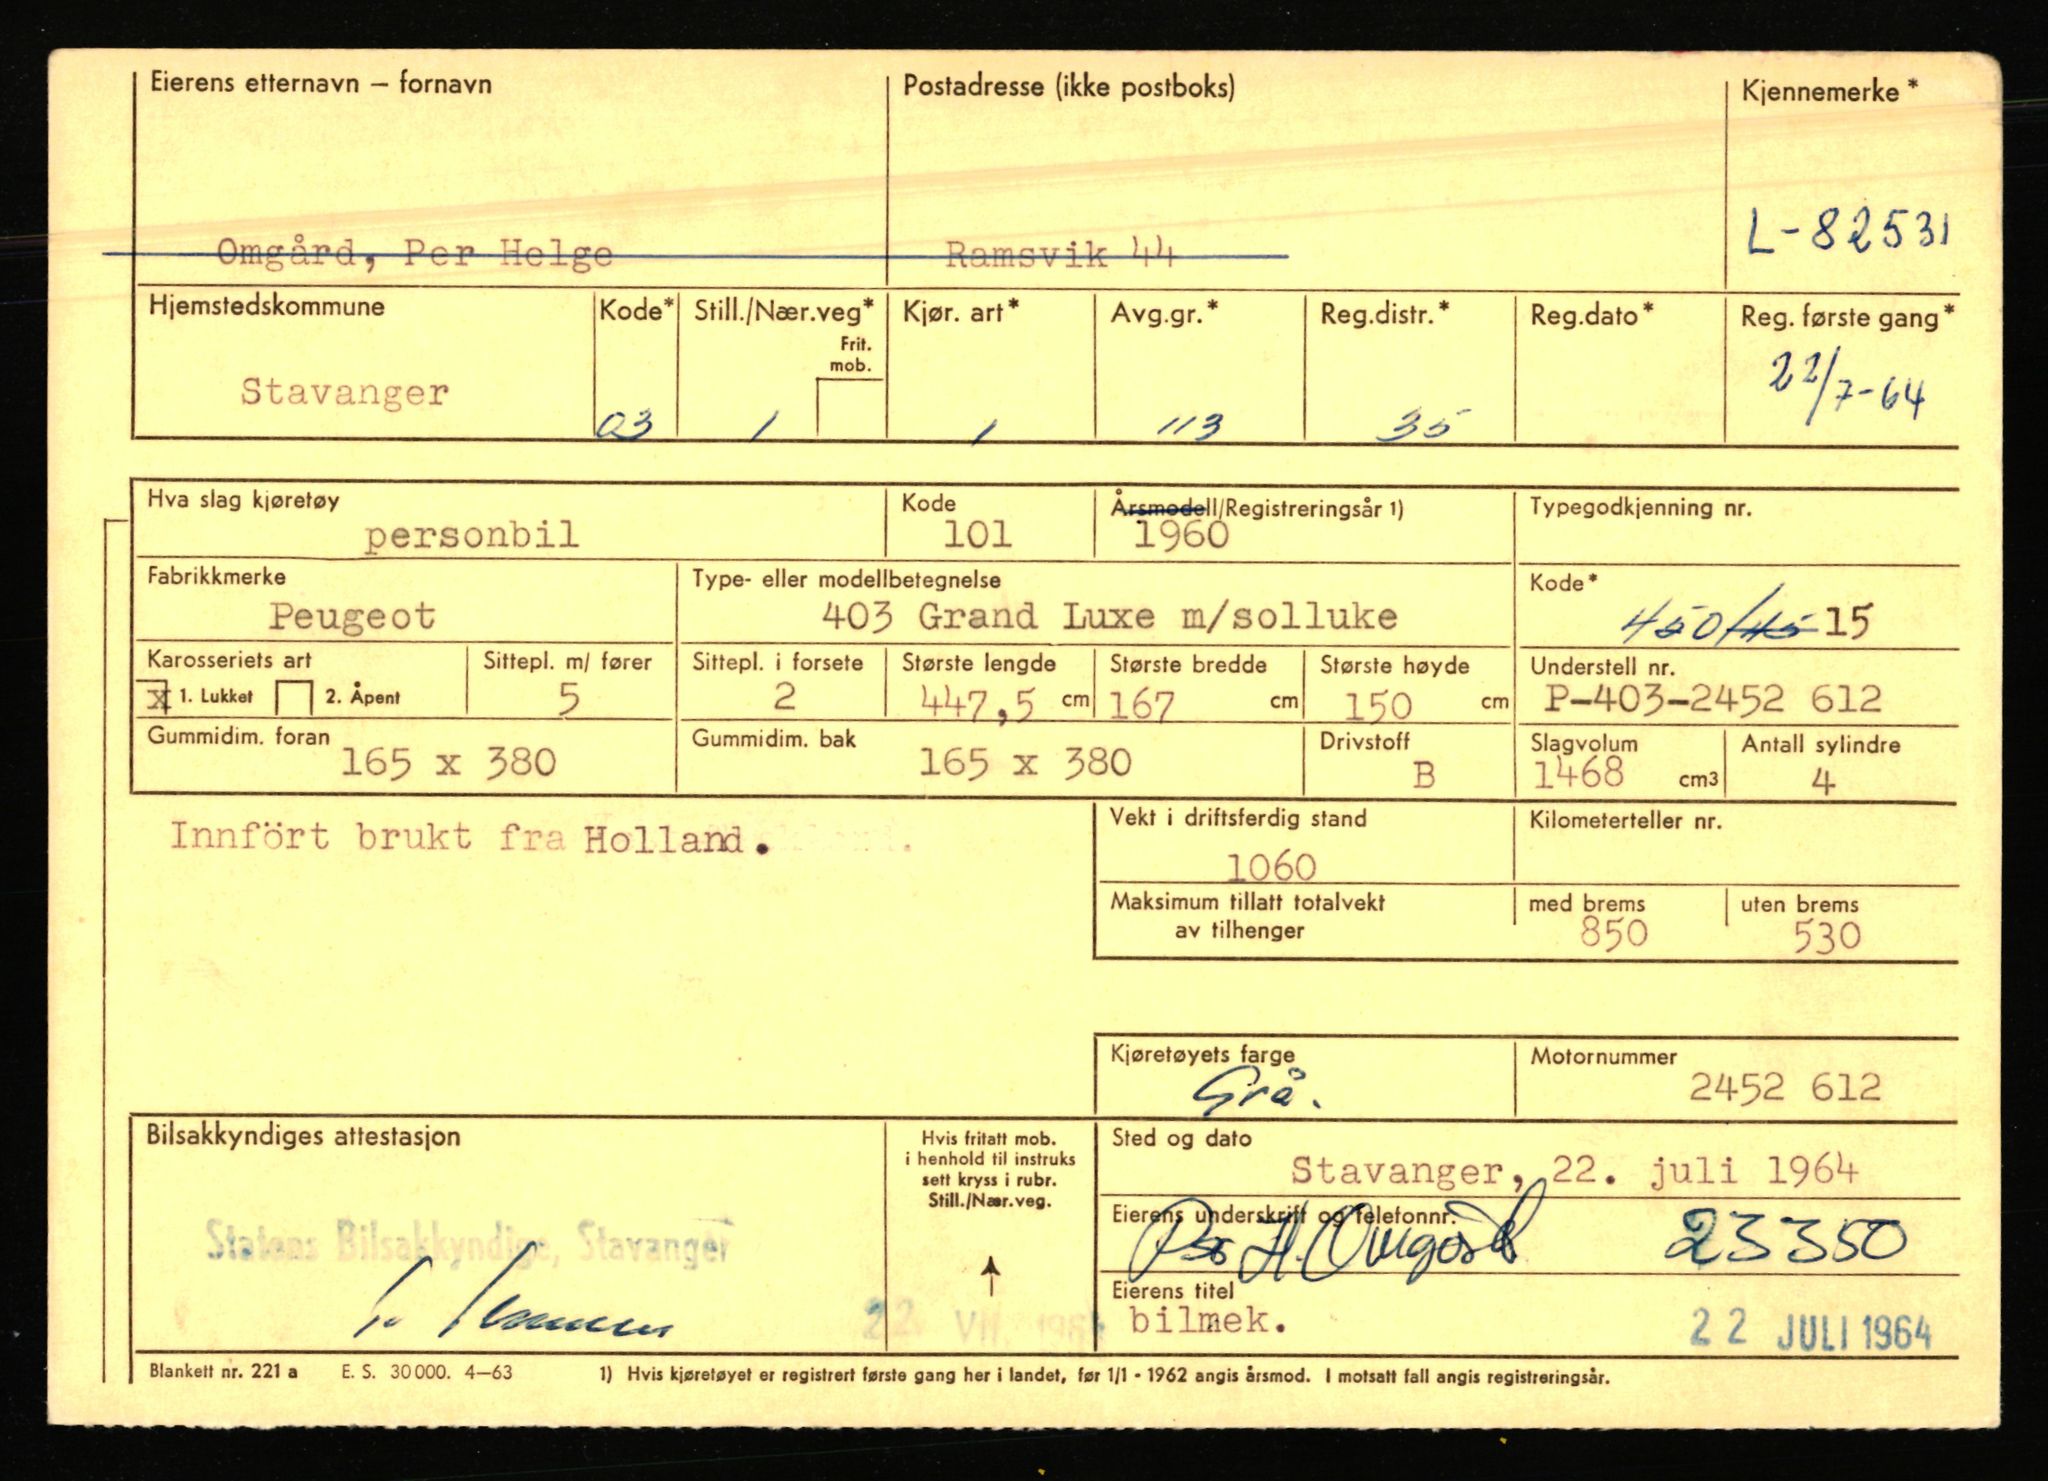 Eierens etternavn – fornavn
Postadresse (ikke postboks)
Kjennemerke*
Omgård, Per Helge
Ramsvik 44
L-82531
Hjemstedskommune
Kode*
Still./Nær.veg*
Frit. mob.
Kjør. art*
Avg.gr.*
Reg.distr.*
Reg.dato*
Reg. første gang*
Stavanger
03
1
1
113
35
22/7-64
Hva slag kjøretøy
Kode
Årsmodell/Registreringsår 1)
Typegodkjenning nr.
personbil
101
1960
Fabrikkmerke
Type- eller modellbetegnelse
Kode*
Peugeot
403 Grand Luxe m/solluke
450/45 15
Karosseriets art
Sittepl. m/ fører
Sittepl. i forsete
Største lengde
Største bredde
Største høyde
Understell nr.
x 1. Lukket
2. Åpent
5
2
447,5 cm
167 cm
150 cm
P-403-2452 612
Gummidim. foran
Gummidim. bak
Drivstoff
Slagvolum
Antall sylindre
165 x 380
165 x 380
B
1468 cm3
4
Innfört brukt fra Holland.
Vekt i driftsferdig stand
Kilometerteller nr.
1060
Maksimum tillatt totalvekt
av tilhenger
med brems
uten brems
850
530
Kjøretøyets farge
Motornummer
Grå.
2452 612
Bilsakkyndiges attestasjon
Hvis fritatt mob.
i henhold til instruks
sett kryss i rubr.
Still./Nær.veg.
Sted og dato
Stavanger, 22. juli 1964
Eierens underskrift og telefonnr.
Per H. Omgård 23350
Statens Bilsakkyndige, Stavanger
22 VII. 1964
Eierens titel
bilmek.
22 JULI 1964
Blankett nr. 221 a E. S. 30 000. 4–63
1) Hvis kjøretøyet er registrert første gang her i landet, før 1/1 - 1962 angis årsmod. I motsatt fall angis registreringsår.